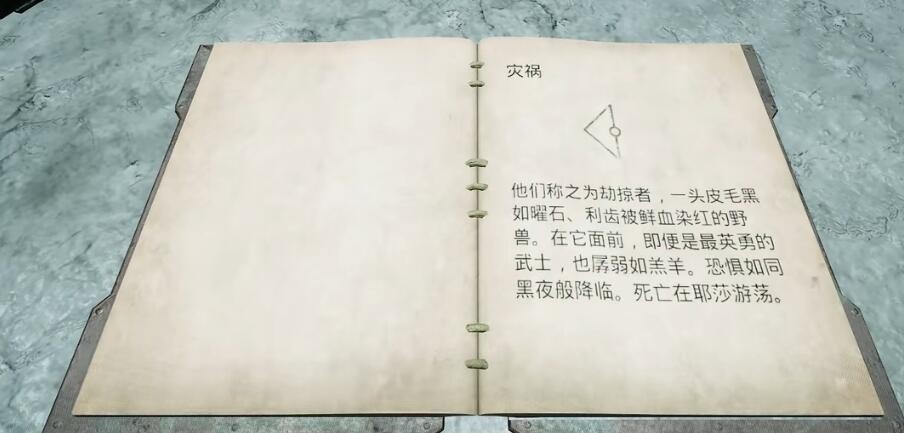 灾祸
他们称之为劫掠者，一头皮毛黑
如曜石、利齿被鲜血染红的野
兽。在它面前，即便是最英勇的
武士，也孱弱如羔羊。恐惧如同
黑夜般降临。死亡在耶莎游荡。